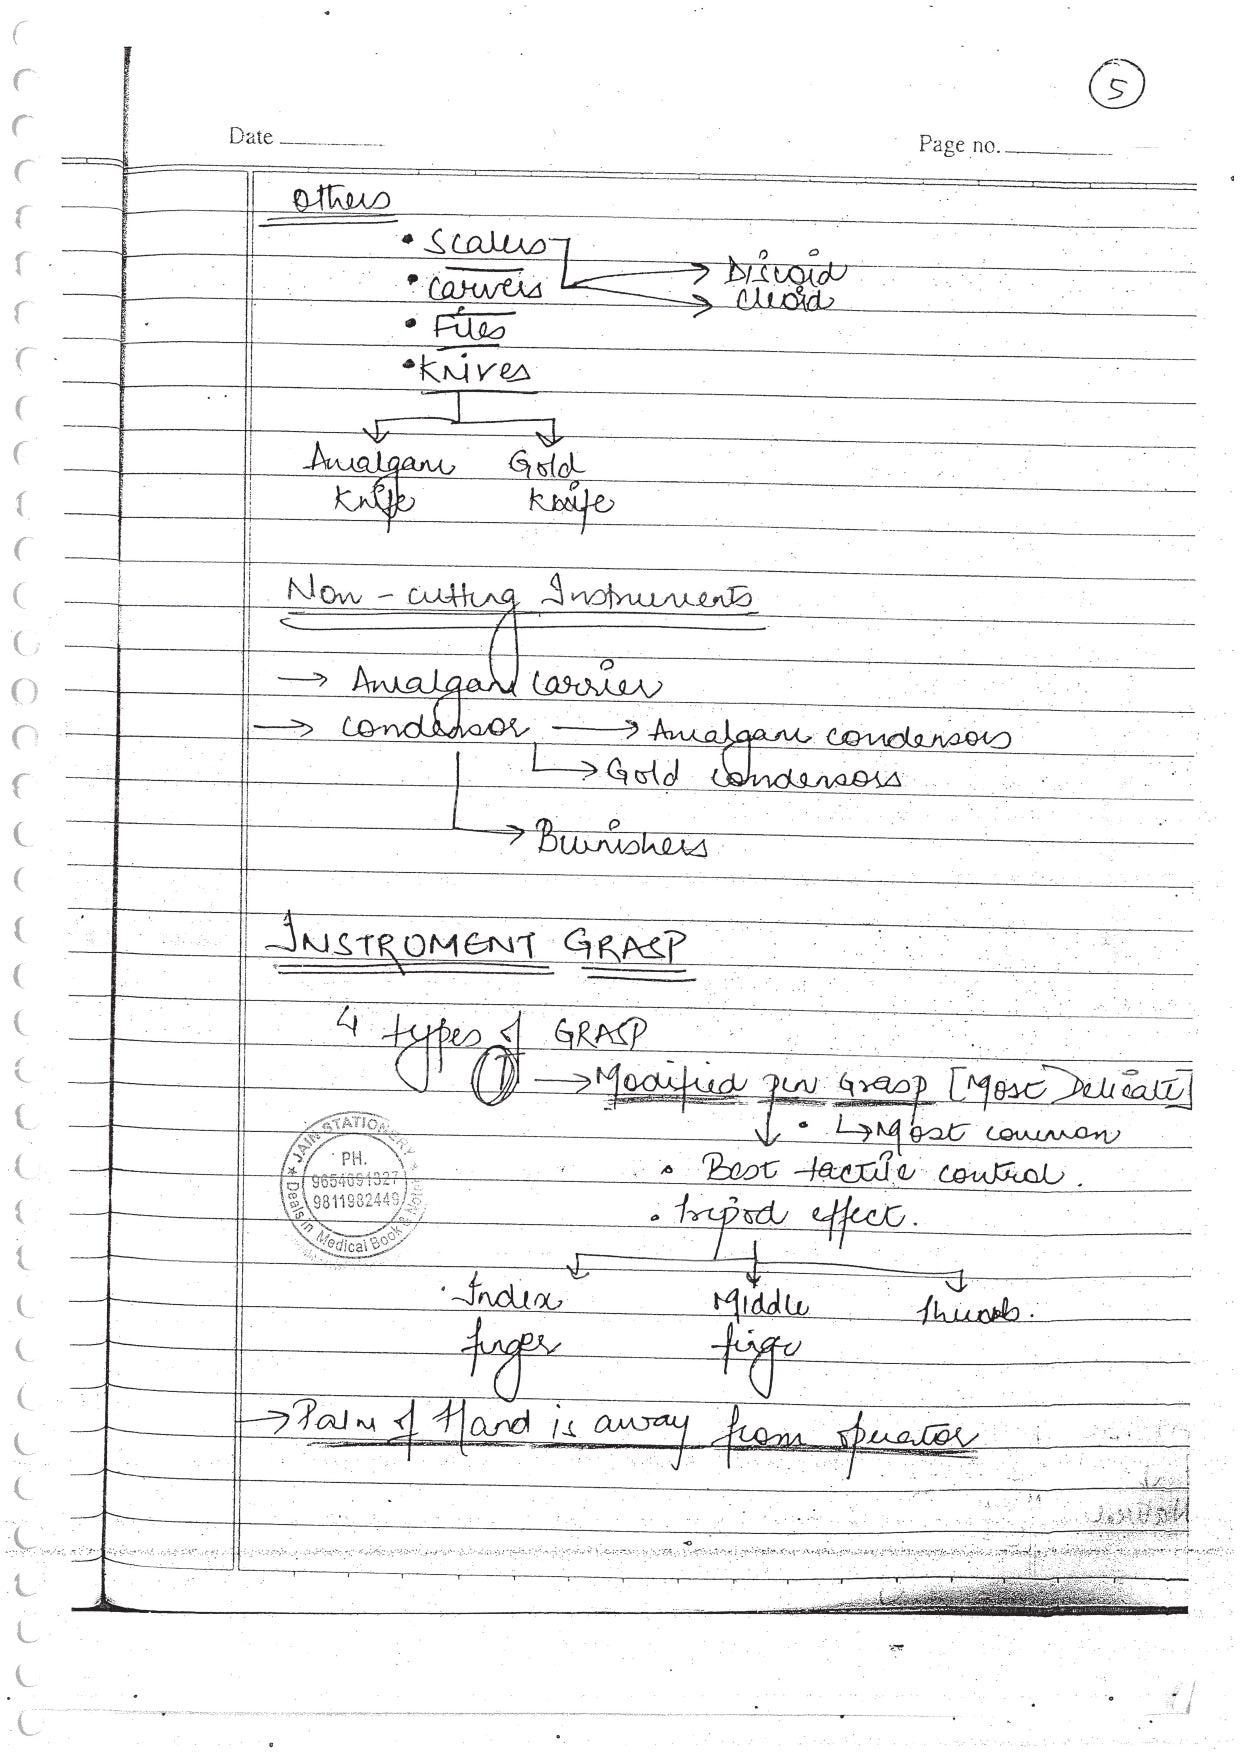 5
Date
Page no.
Others
• Scalers
→ Discoid
• Carvers
→ Cleoid
• Files
• Knives
Amalgam Gold
Knife Knife
Non - cutting Instruments
→ Amalgam carrier
→ condensor → Amalgam condensors
→ Gold condensors
→ Burnishers
INSTROMENT GRASP
4 types of GRASP
① → Modified pen Grasp [Most Delicate]
• ↳ Most common
• Best tactile control.
• tripod effect.
Index Middle Thumb.
finger finge
→ Palm of Hand is away from operator
★ JAIN STATIONERY ★
PH.
9654691327
9811982449
Deals in Medical Book &